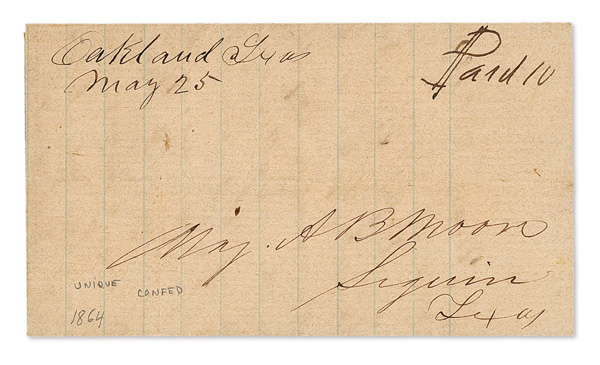 Oakland Texas
May 25
Paid 10
Maj. A B Moore
Seguin
Texas
UNIQUE CONFED
1864